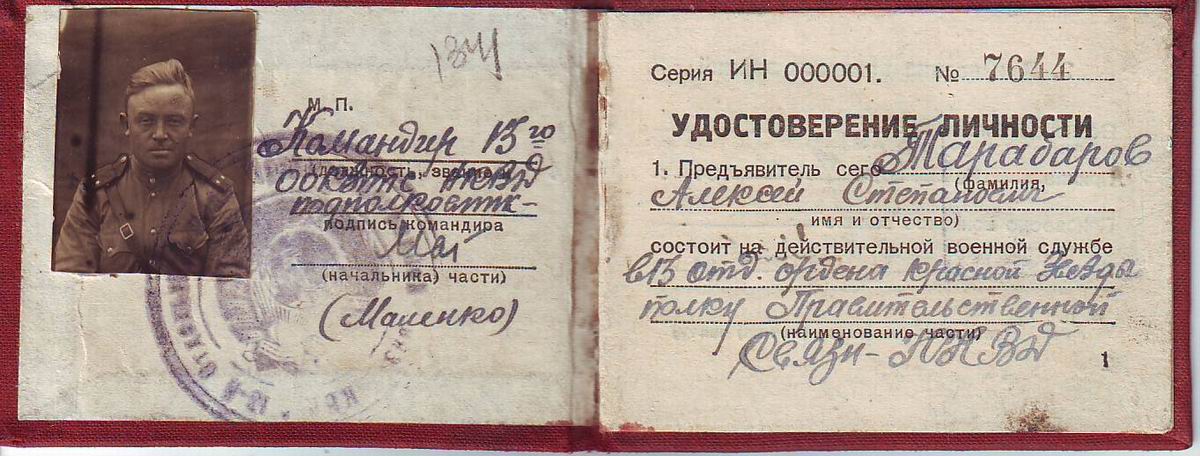 134
М. П.
Командир 13го
(должность, звание и
подполковник-
подпись командира
Мал
(начальника) части)
(Маленко)
Серия ИН 000001. № 7644
УДОСТОВЕРЕНИЕ ЛИЧНОСТИ
1. Предъявитель сего Тарабаров
(фамилия,
Алексей Степанович
имя и отчество)
состоит на действительной военной службе
в 13 отд. ордена Красной Звезды
полку Правительственной
(наименование части)
Связи-НКВД
1